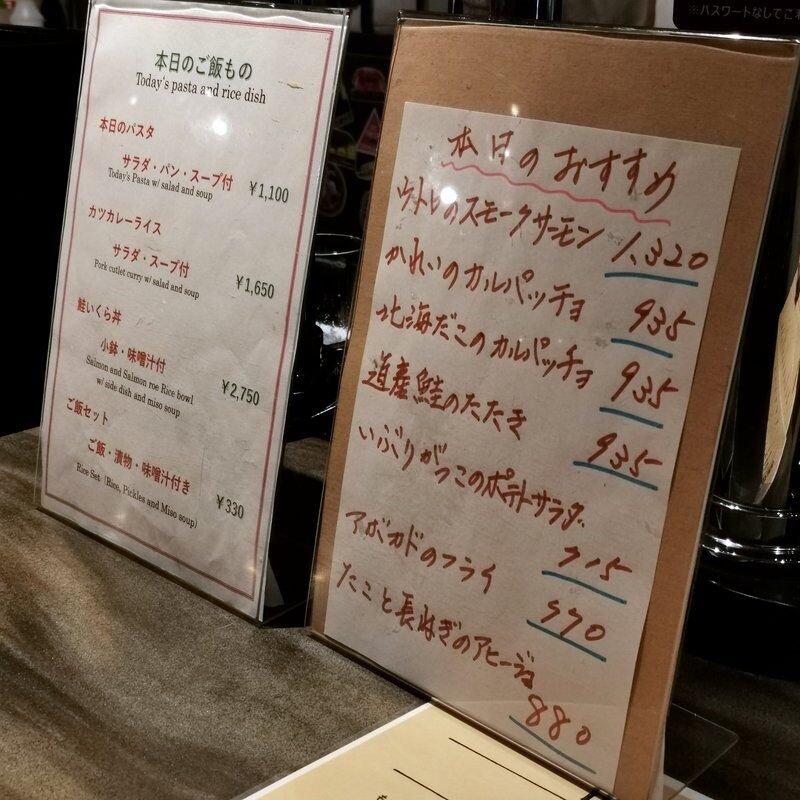 本日のご飯もの
Today's pasta and rice dish
本日のパスタ
サラダ・パン・スープ付
Today's Pasta w/ salad and soup
¥1,100
カツカレーライス
サラダ・スープ付
Pork cutlet curry w/ salad and soup
¥1,650
鮭いくら丼
小鉢・味噌汁付
Salmon and Salmon roe Rice bowl
w/ side dish and miso soup
¥2,750
ご飯セット
ご飯・漬物・味噌汁付き
Rice Set (Rice, Pickles and Miso soup)
¥330
本日のおすすめ
ウトロのスモークサーモン 1,320
かれいのカルパッチョ 935
北海だこのカルパッチョ 935
道産鮭のたたき 935
いぶりがっこのポテトサラダ
715
アボカドのフライ 570
たこと長ねぎのアヒージョ
880
※パスワードなしでご